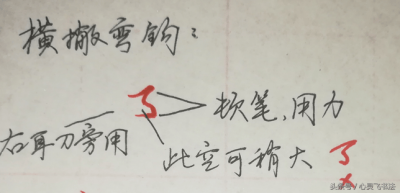 横撇弯钩：
顿笔,用力
右耳刀旁用
此空可稍大
头条号／心灵飞书法